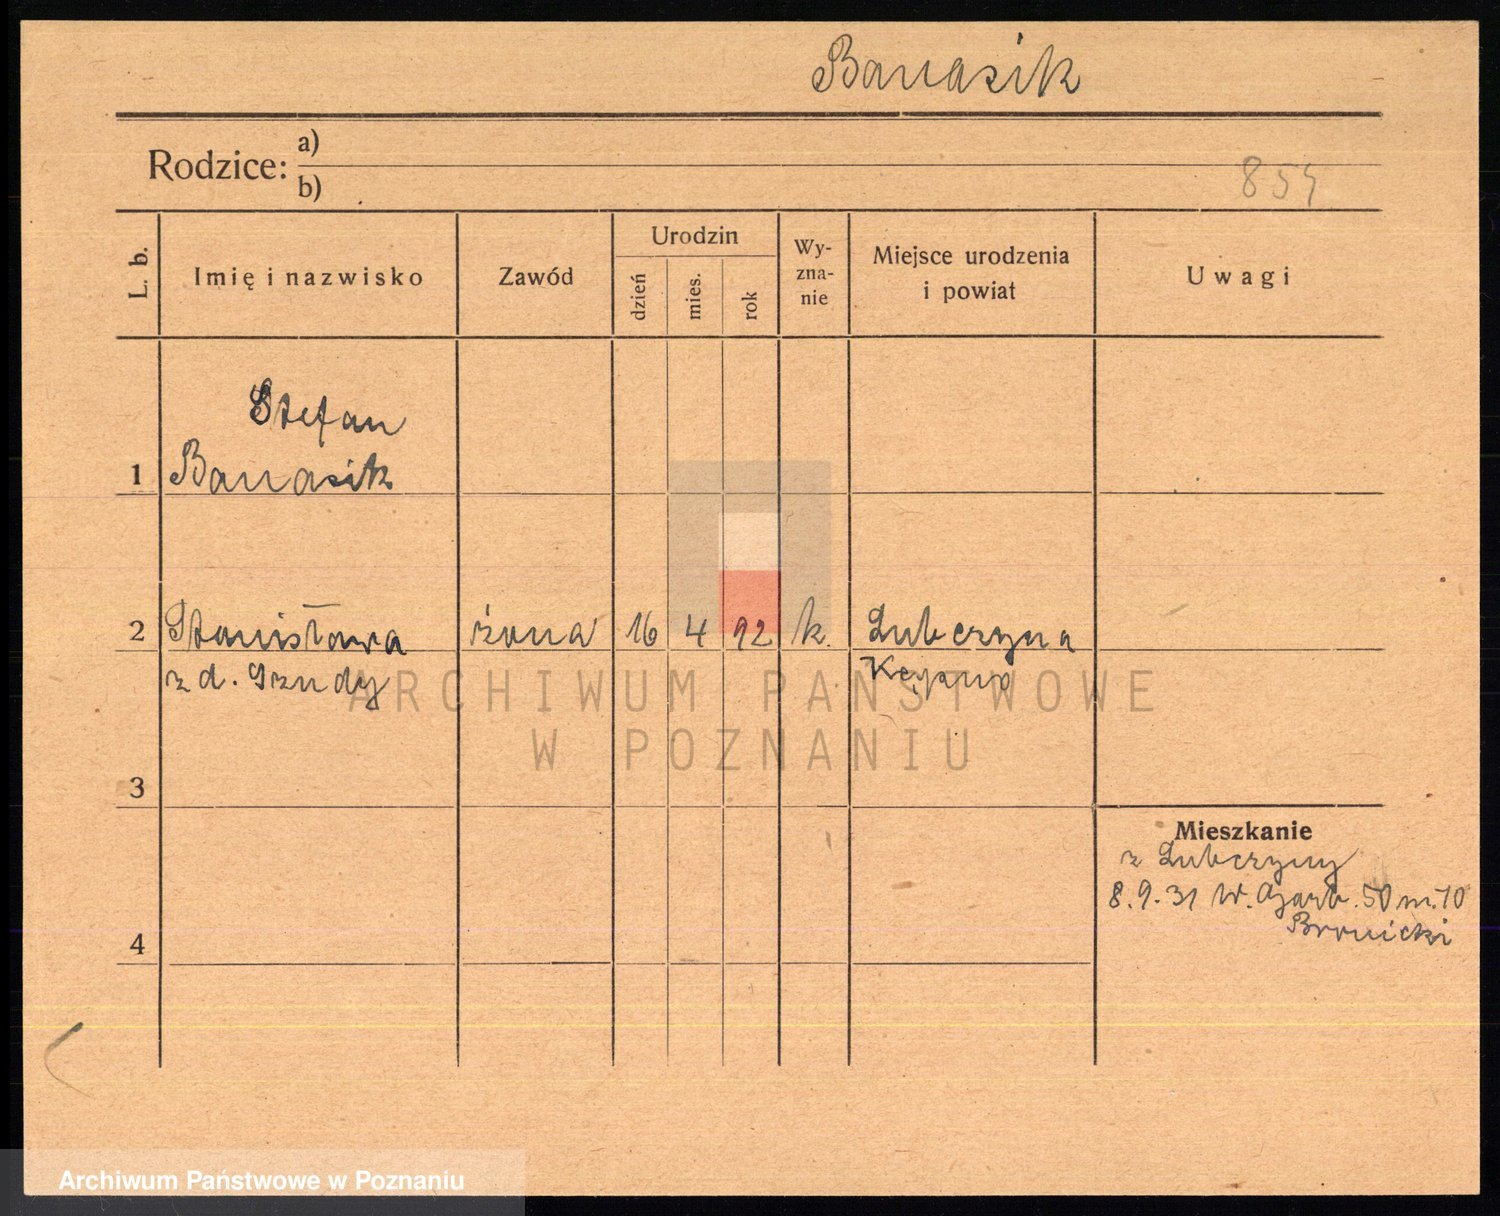 Banasik
Rodzice: a)
b)
854
L. b.
Imię i nazwisko
Zawód
Urodzin
dzień
mies.
rok
Wy-
zna-
nie
Miejsce urodzenia
i powiat
Uwagi
Stefan
1 Banasik
2 Stanisława żona 16 4 92 k. Lubczyna
z d. Grzndy Kępno
ARCHIWUM PAŃSTWOWE
W POZNANIU
3
Mieszkanie
z Lubczyny
8.9.31 W. Garb. 50 m. 10
Bronicki
4
Archiwum Państwowe w Poznaniu